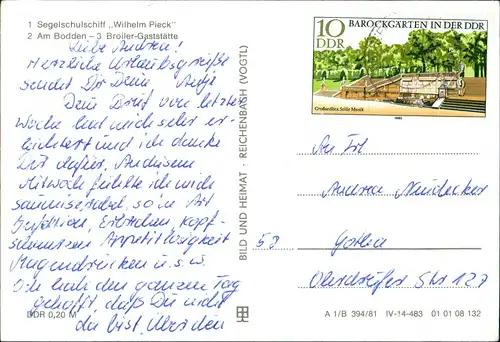 1 Segelschulschiff „Wilhelm Pieck"
2 Am Bodden – 3 Broiler-Gaststätte
Liebe Andrea!
Herzliche Urlaubsgrüße
sendet Dir Deine Antje
Dein Brief von letzter
Woche hat mich sehr er-
leichtert und ich danke
Dir dafür. An diesem
Mittwoch fühlte ich mich
saumiserabel, so in Art
Erbrechen, Kopf-
schmerzen Appetitlosigkeit
Magendrücken u.s.w.
Ich hab den ganzen Tag
gehofft, daß Du nicht
da bist, über den
DDR 0,20 M
BILD UND HEIMAT · REICHENBACH (VOGTL)
10
DDR
BAROCKGARTEN IN DER DDR
Großsedlitz, Stille Musik
1980
An Frl.
Andrea
58
Gotha
Str 127
A 1/B 394/81 IV-14-483 01 01 08 132